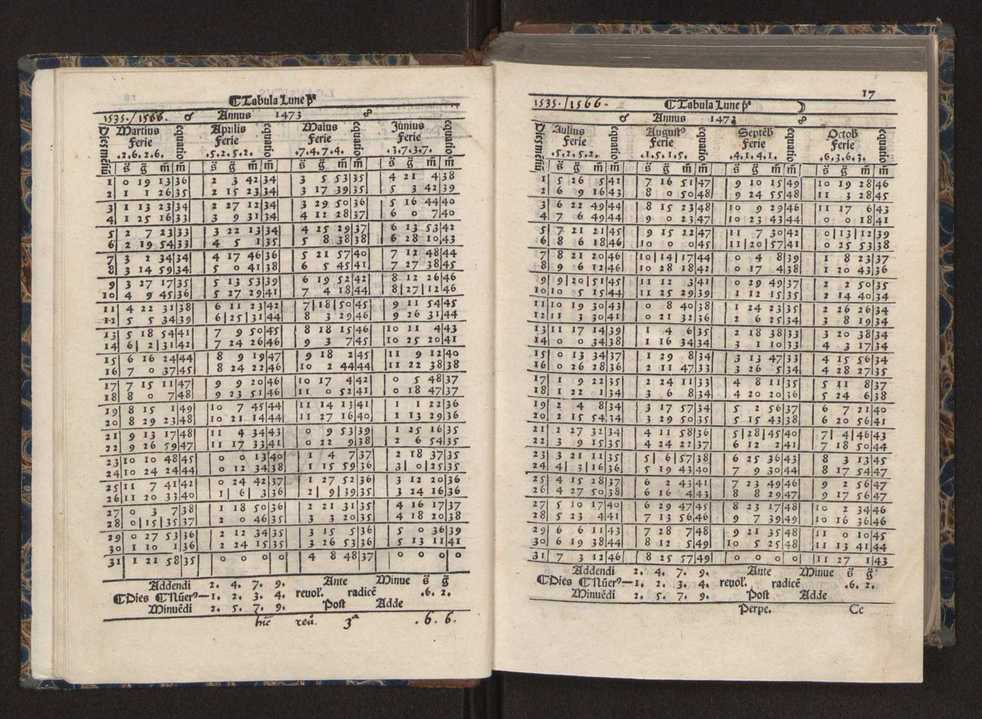 Tabula Lune pª
1535. / 1566. ♂ Annus 1473 ☍
Dies mēsiū Martius equatio Aprilis equatio Maius equatio Junius equatio
Ferie Ferie Ferie Ferie
.2.6.2.6. .5.2.5.2. .7.4.7.4. .3.7.3.7.
s̄ ḡ m̄ m̄ s̄ ḡ m̄ m̄ s̄ ḡ m̄ m̄ s̄ ḡ m̄ m̄
1 0 19 13 36 2 3 42 34 3 5 53 35 4 21 4 38
2 1 1 26 35 2 15 23 34 3 17 39 35 5 3 42 39
3 1 13 23 34 2 27 12 34 3 29 50 36 5 16 44 40
4 1 25 16 33 3 9 31 34 4 12 28 37 6 0 7 40
5 2 7 23 33 3 22 13 34 4 25 29 37 6 13 53 42
6 2 19 54 33 4 5 1 35 5 8 38 38 6 28 10 43
7 3 2 34 34 4 17 46 36 5 21 57 40 7 12 48 44
8 3 14 59 34 5 0 41 38 6 5 45 41 7 27 38 45
9 3 27 17 35 5 13 53 39 6 19 52 42 8 12 26 46
10 4 9 45 36 5 27 29 41 7 4 18 44 8 27 12 46
11 4 22 31 38 6 11 23 42 7 18 50 45 9 11 54 45
12 5 5 34 39 6 25 31 44 8 3 29 46 9 26 31 44
13 5 18 54 41 7 9 50 45 8 18 15 46 10 11 4 43
14 6 2 31 42 7 24 26 46 9 3 7 45 10 25 20 41
15 6 16 24 44 8 9 19 47 9 18 2 45 11 9 12 40
16 7 0 37 45 8 24 22 46 10 2 44 44 11 22 38 38
17 7 15 11 47 9 9 20 46 10 17 4 42 0 5 48 37
18 8 0 7 48 9 23 51 46 11 0 52 41 0 18 47 37
19 8 15 1 49 10 7 45 44 11 14 13 41 1 1 22 36
20 8 29 23 48 10 21 14 44 11 27 16 40 1 13 29 36
21 9 13 17 48 11 4 34 43 0 9 53 39 1 25 16 35
22 9 26 59 47 11 17 33 41 0 22 9 38 2 6 54 35
23 10 10 48 45 0 0 13 40 1 4 7 37 2 18 37 35
24 10 24 24 44 0 12 34 38 1 15 59 36 3 0 25 35
25 11 7 41 42 0 24 42 37 1 27 52 36 3 12 20 36
26 11 20 33 40 1 6 3 36 2 9 39 35 3 24 16 36
27 0 3 7 38 1 18 50 36 2 21 31 35 4 16 17 37
28 0 15 35 37 2 0 46 35 3 3 20 35 4 18 20 38
29 0 27 53 36 2 12 34 35 3 15 5 36 5 0 36 39
30 1 10 1 36 2 24 15 35 3 26 53 36 5 13 11 41
31 1 21 58 35 0 0 0 4 8 48 37 0 0 0 0
Addendi 2. 4. 7. 9. Ante Minue s̄ ḡ
Dies Nūerꝰ—1. 2. 3. 4. revol. radicē .6. 2.
Minuēdi 2. 5. 7. 9. Post Adde
hic reū. 3ª .6. 6.
17
1535. / 1566. Tabula Lune pª ☽
♂ Annus 1473 ☍
Dies mēsiū Julius equatio Augustꝰ equatio Septēb equatio Octob equatio
Ferie Ferie Ferie Ferie
.5.2.5.2. .1.5.1.5. .4.1.4.1. .6.3.6.3.
s̄ ḡ m̄ m̄ s̄ ḡ m̄ m̄ s̄ ḡ m̄ m̄ s̄ ḡ m̄ m̄
1 5 26 5 41 7 16 51 47 9 10 15 49 10 19 28 46
2 6 9 16 43 8 0 50 48 9 24 55 48 11 3 28 45
3 6 22 49 44 8 15 23 48 10 9 29 46 11 17 6 43
4 7 6 49 44 9 0 23 47 10 23 43 44 0 0 18 41
5 7 21 21 45 9 15 22 47 11 7 30 42 0 13 12 39
6 8 6 18 46 10 0 0 45 11 20 57 41 0 25 53 38
7 8 21 20 46 10 14 17 44 0 4 8 39 1 8 23 37
8 9 6 12 46 10 28 18 42 0 17 4 38 1 20 43 36
9 9 20 51 45 11 12 3 41 0 29 49 37 2 2 50 35
10 10 5 15 44 11 25 29 39 1 12 15 35 2 14 40 34
11 10 19 30 43 0 8 40 38 1 24 23 35 2 26 26 34
12 11 3 20 41 0 21 32 36 2 6 25 34 3 8 19 34
13 11 17 14 39 1 4 6 35 2 18 38 33 3 20 38 34
14 0 0 34 38 1 16 34 34 3 1 10 33 4 3 17 34
15 0 13 34 37 1 29 8 34 3 13 47 33 4 15 56 34
16 0 26 28 36 2 11 47 33 3 26 5 34 4 28 27 35
17 1 9 22 35 2 24 11 33 4 8 11 35 5 11 8 37
18 1 22 1 34 3 6 8 34 4 20 20 36 5 24 6 38
19 2 4 8 34 3 17 57 34 5 2 56 37 6 7 21 40
20 2 15 54 34 3 29 50 35 5 15 43 38 6 20 56 41
21 2 27 32 34 4 11 58 36 5 28 45 40 7 4 46 43
22 3 9 15 35 4 24 21 37 6 12 2 41 7 18 50 44
23 3 21 11 35 5 6 57 38 6 25 36 43 8 3 13 45
24 4 3 16 36 5 19 43 40 7 9 30 44 8 17 54 47
25 4 15 28 37 6 2 43 41 7 23 49 46 9 2 56 47
26 4 27 50 38 6 16 4 43 8 8 29 47 9 17 56 47
27 5 10 17 40 6 29 47 45 8 23 17 48 10 2 34 46
28 5 23 4 41 7 13 56 46 9 7 39 49 10 16 36 46
29 6 6 11 43 7 28 7 48 9 21 35 48 11 0 10 45
30 6 19 38 44 8 12 5 49 10 5 25 48 11 13 41 44
31 7 3 12 46 8 25 57 49 0 0 0 0 11 27 1 43
Addendi 2. 4. 7. 9. Ante Minue s̄ ḡ
Dies Nūerꝰ—1. 2. 3. 4. revol. radicē .6. 2.
Minuēdi 2. 5. 7. 9. Post Adde
Perpe. Cc